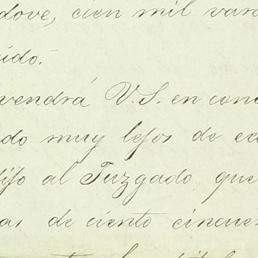 dove, cien mil vara
ido.
vendrá V.S. en cono
do muy lejos de ec
dijo al Juzgado que
as de ciento cincuen